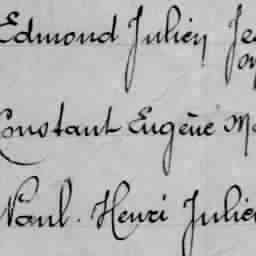 Edmond Julien Je
Constant Eugène M
Paul. Henri Julie